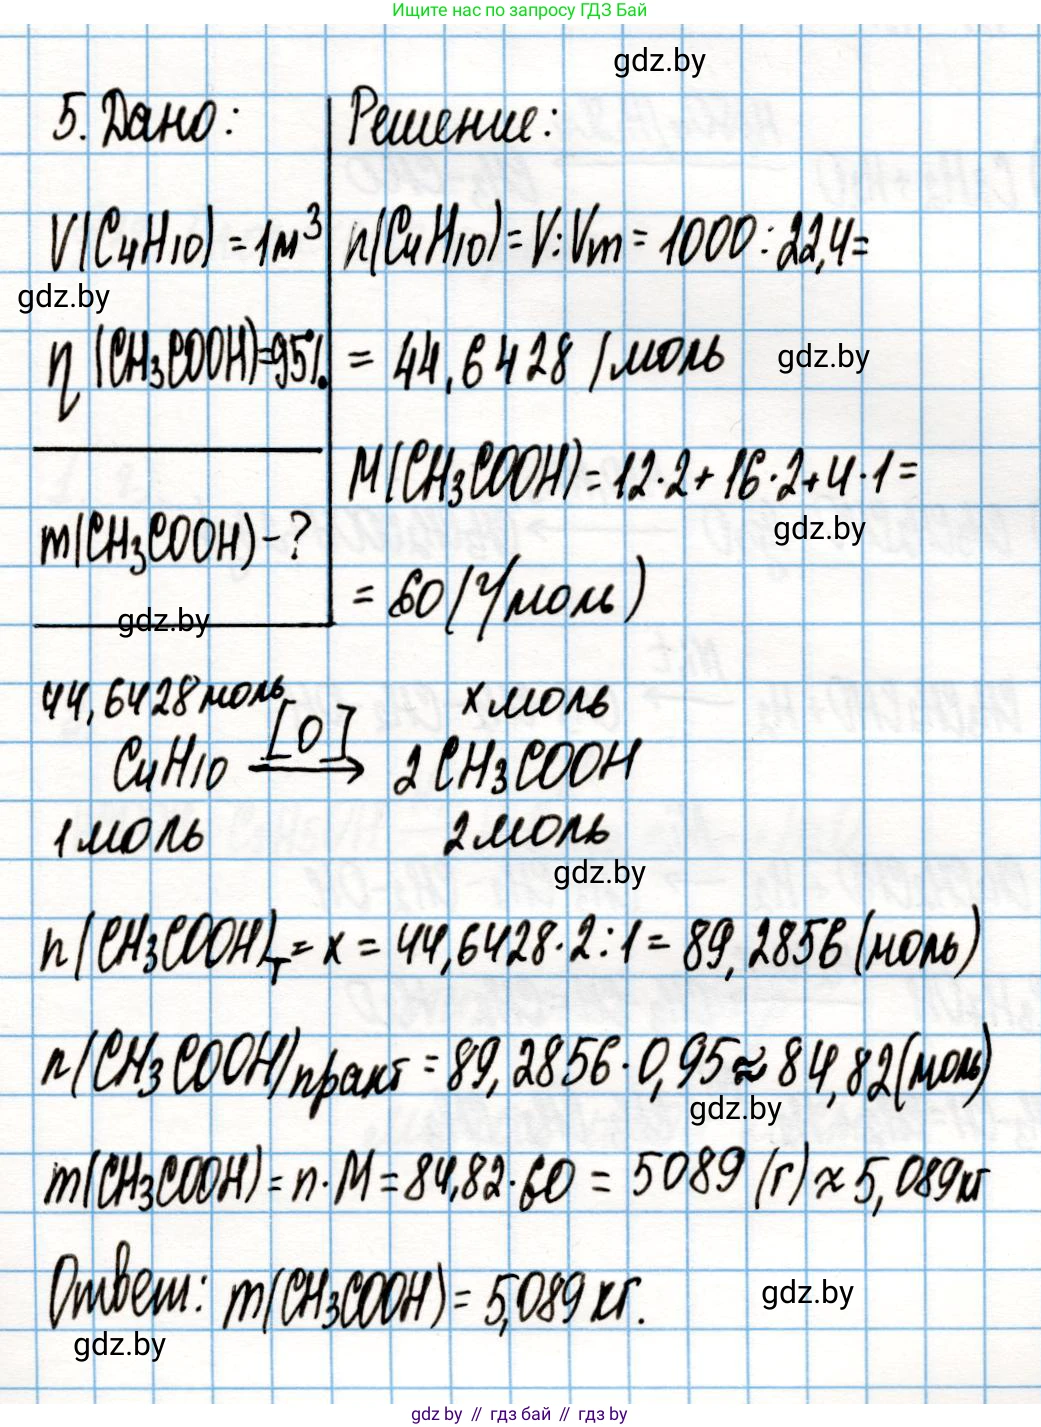 Ищите нас по запросу ГДЗ Бай
gdz.by
5. Дано:
Решение:
V(C4H10) = 1м³
n(C4H10) = V:Vm = 1000:22,4=
gdz.by
η (CH3COOH)=95%.
= 44,6428 (моль
gdz.by
M(CH3COOH) = 12·2+16·2+4·1=
gdz.by
m(CH3COOH) - ?
= 60 (г/моль)
gdz.by
44,6428 моль
x моль
C4H10 [O]→ 2CH3COOH
1 моль
2 моль
gdz.by
n(CH3COOH)т = x = 44,6428·2:1 = 89,2856 (моль)
n(CH3COOH)практ = 89,2856·0,95 ≈ 84,82 (моль)
gdz.by
m(CH3COOH) = n·M = 84,82·60 = 5089 (г) ≈ 5,089 кг
Ответ: m(CH3COOH) = 5,089 кг.
gdz.by
gdz.by
gdz.by // гдз бай // гдз by